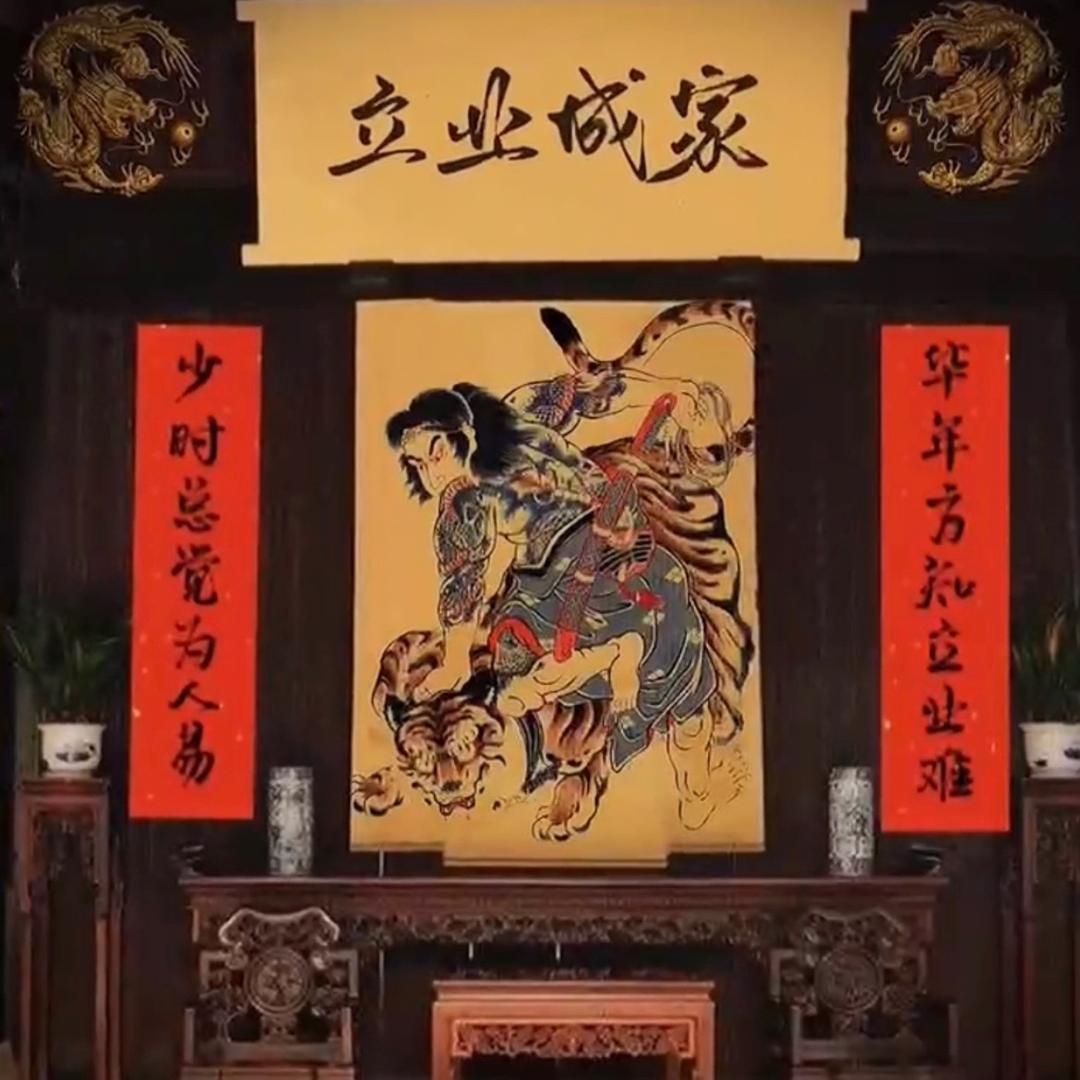 立业城家
少时总觉为人易
华年方知立业难